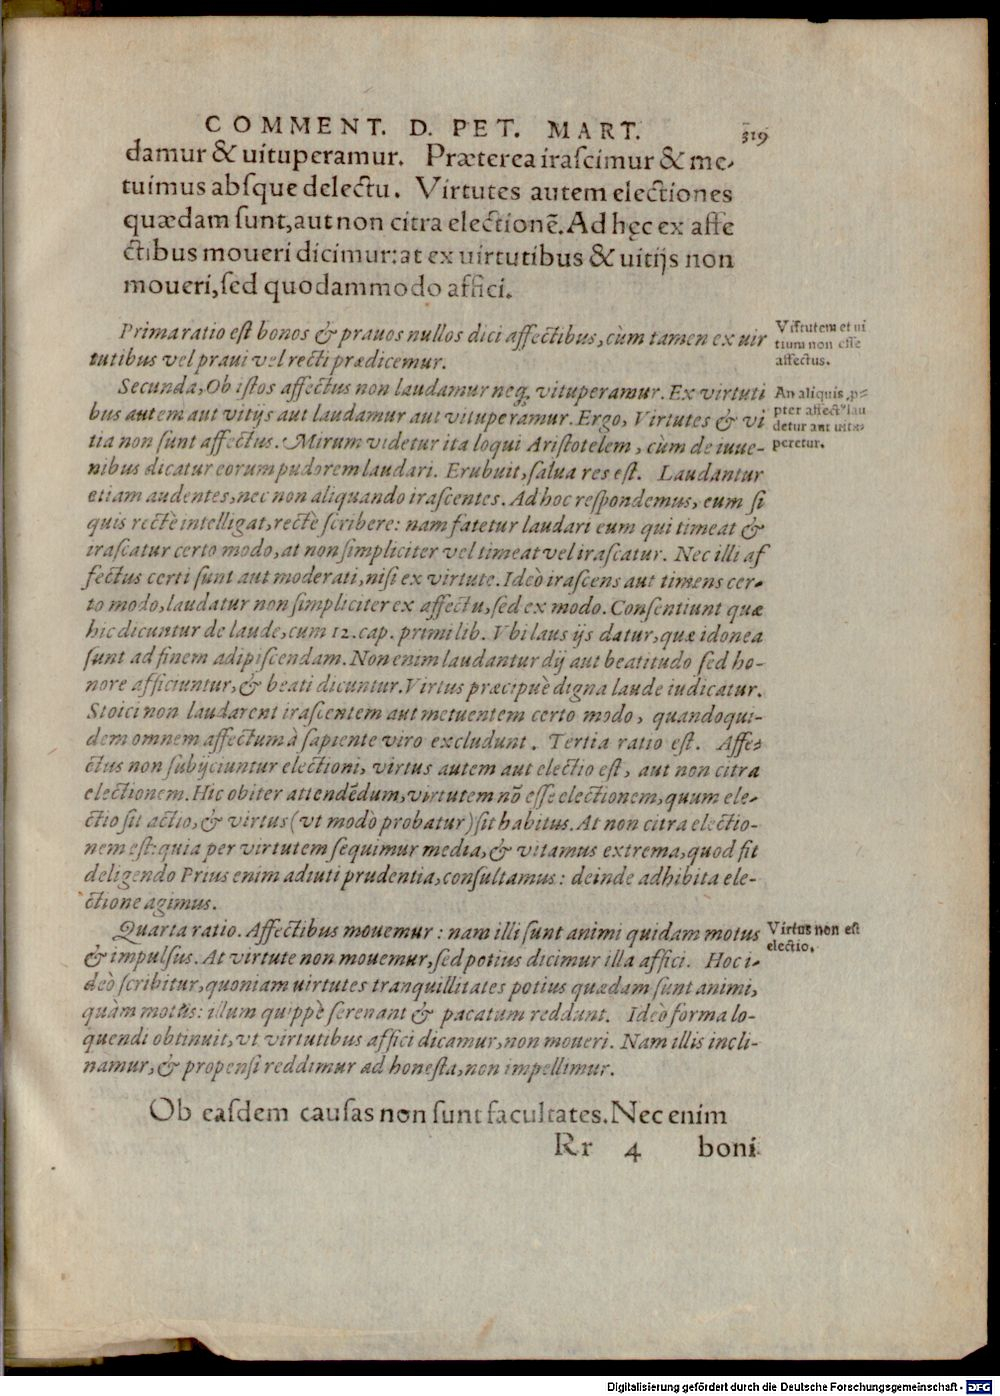 COMMENT. D. PET. MART. 319
damur & uituperamur. Præterea irascimur & me-
tuimus absque delectu. Virtutes autem electiones
quædam sunt, aut non citra electionẽ. Ad hęc ex affe
ctibus moueri dicimur: at ex uirtutibus & uitijs non
moueri, sed quodammodo affici.
Prima ratio est bonos & prauos nullos dici affectibus, cùm tamen ex uir
tutibus vel praui vel recti prædicemur.
Virtutem et ui
tium non esse
affectus.
Secunda, Ob istos affectus non laudamur neq; vituperamur. Ex virtuti
bus autem aut vitijs aut laudamur aut vituperamur. Ergo, Virtutes & vi
tia non sunt affectus. Mirum videtur ita loqui Aristotelem, cùm de iuue-
nibus dicatur eorum pudorem laudari. Erubuit, salua res est. Laudantur
etiam audentes, nec non aliquando irascentes. Ad hoc respondemus, eum si
quis rectè intelligat, rectè scribere: nam fatetur laudari eum qui timeat &
irascatur certo modo, at non simpliciter vel timeat vel irascatur. Nec illi af
fectus certi sunt aut moderati, nisi ex virtute. Ideò irascens aut timens cer-
to modo, laudatur non simpliciter ex affectu, sed ex modo. Consentiunt quæ
hic dicuntur de laude, cum 12. cap. primi lib. Vbi laus ijs datur, quæ idonea
sunt ad finem adipiscendam. Non enim laudantur dij aut beatitudo sed ho-
nore afficiuntur, & beati dicuntur. Virtus præcipuè digna laude iudicatur.
Stoici non laudarent irascentem aut metuentem certo modo, quandoqui-
dem omnem affectum à sapiente viro excludunt. Tertia ratio est. Affe-
ctus non subijciuntur electioni, virtus autem aut electio est, aut non citra
electionem. Hic obiter attendẽdum, virtutem nõ esse electionem, quum ele-
ctio sit actio, & virtus (vt modò probatur) sit habitus. At non citra electio-
nem est: quia per virtutem sequimur media, & vitamus extrema, quod fit
deligendo Prius enim adiuti prudentia, consultamus: deinde adhibita ele-
ctione agimus.
An aliquis ꝓ-
pter affectꝰ lau
detur aut uitu-
peretur.
Quarta ratio. Affectibus mouemur: nam illi sunt animi quidam motus
& impulsus. At virtute non mouemur, sed potius dicimur illa affici. Hoc i-
deò scribitur, quoniam uirtutes tranquillitates potius quædam sunt animi,
quàm motus: illum quippè serenant & pacatum reddunt. Ideò forma lo-
quendi obtinuit, vt virtutibus affici dicamur, non moueri. Nam illis incli-
namur, & propensi reddimur ad honesta, non impellimur.
Virtus non est
electio.
Ob easdem causas non sunt facultates. Nec enim
Rr 4 boni
Digitalisierung gefördert durch die Deutsche Forschungsgemeinschaft - DFG